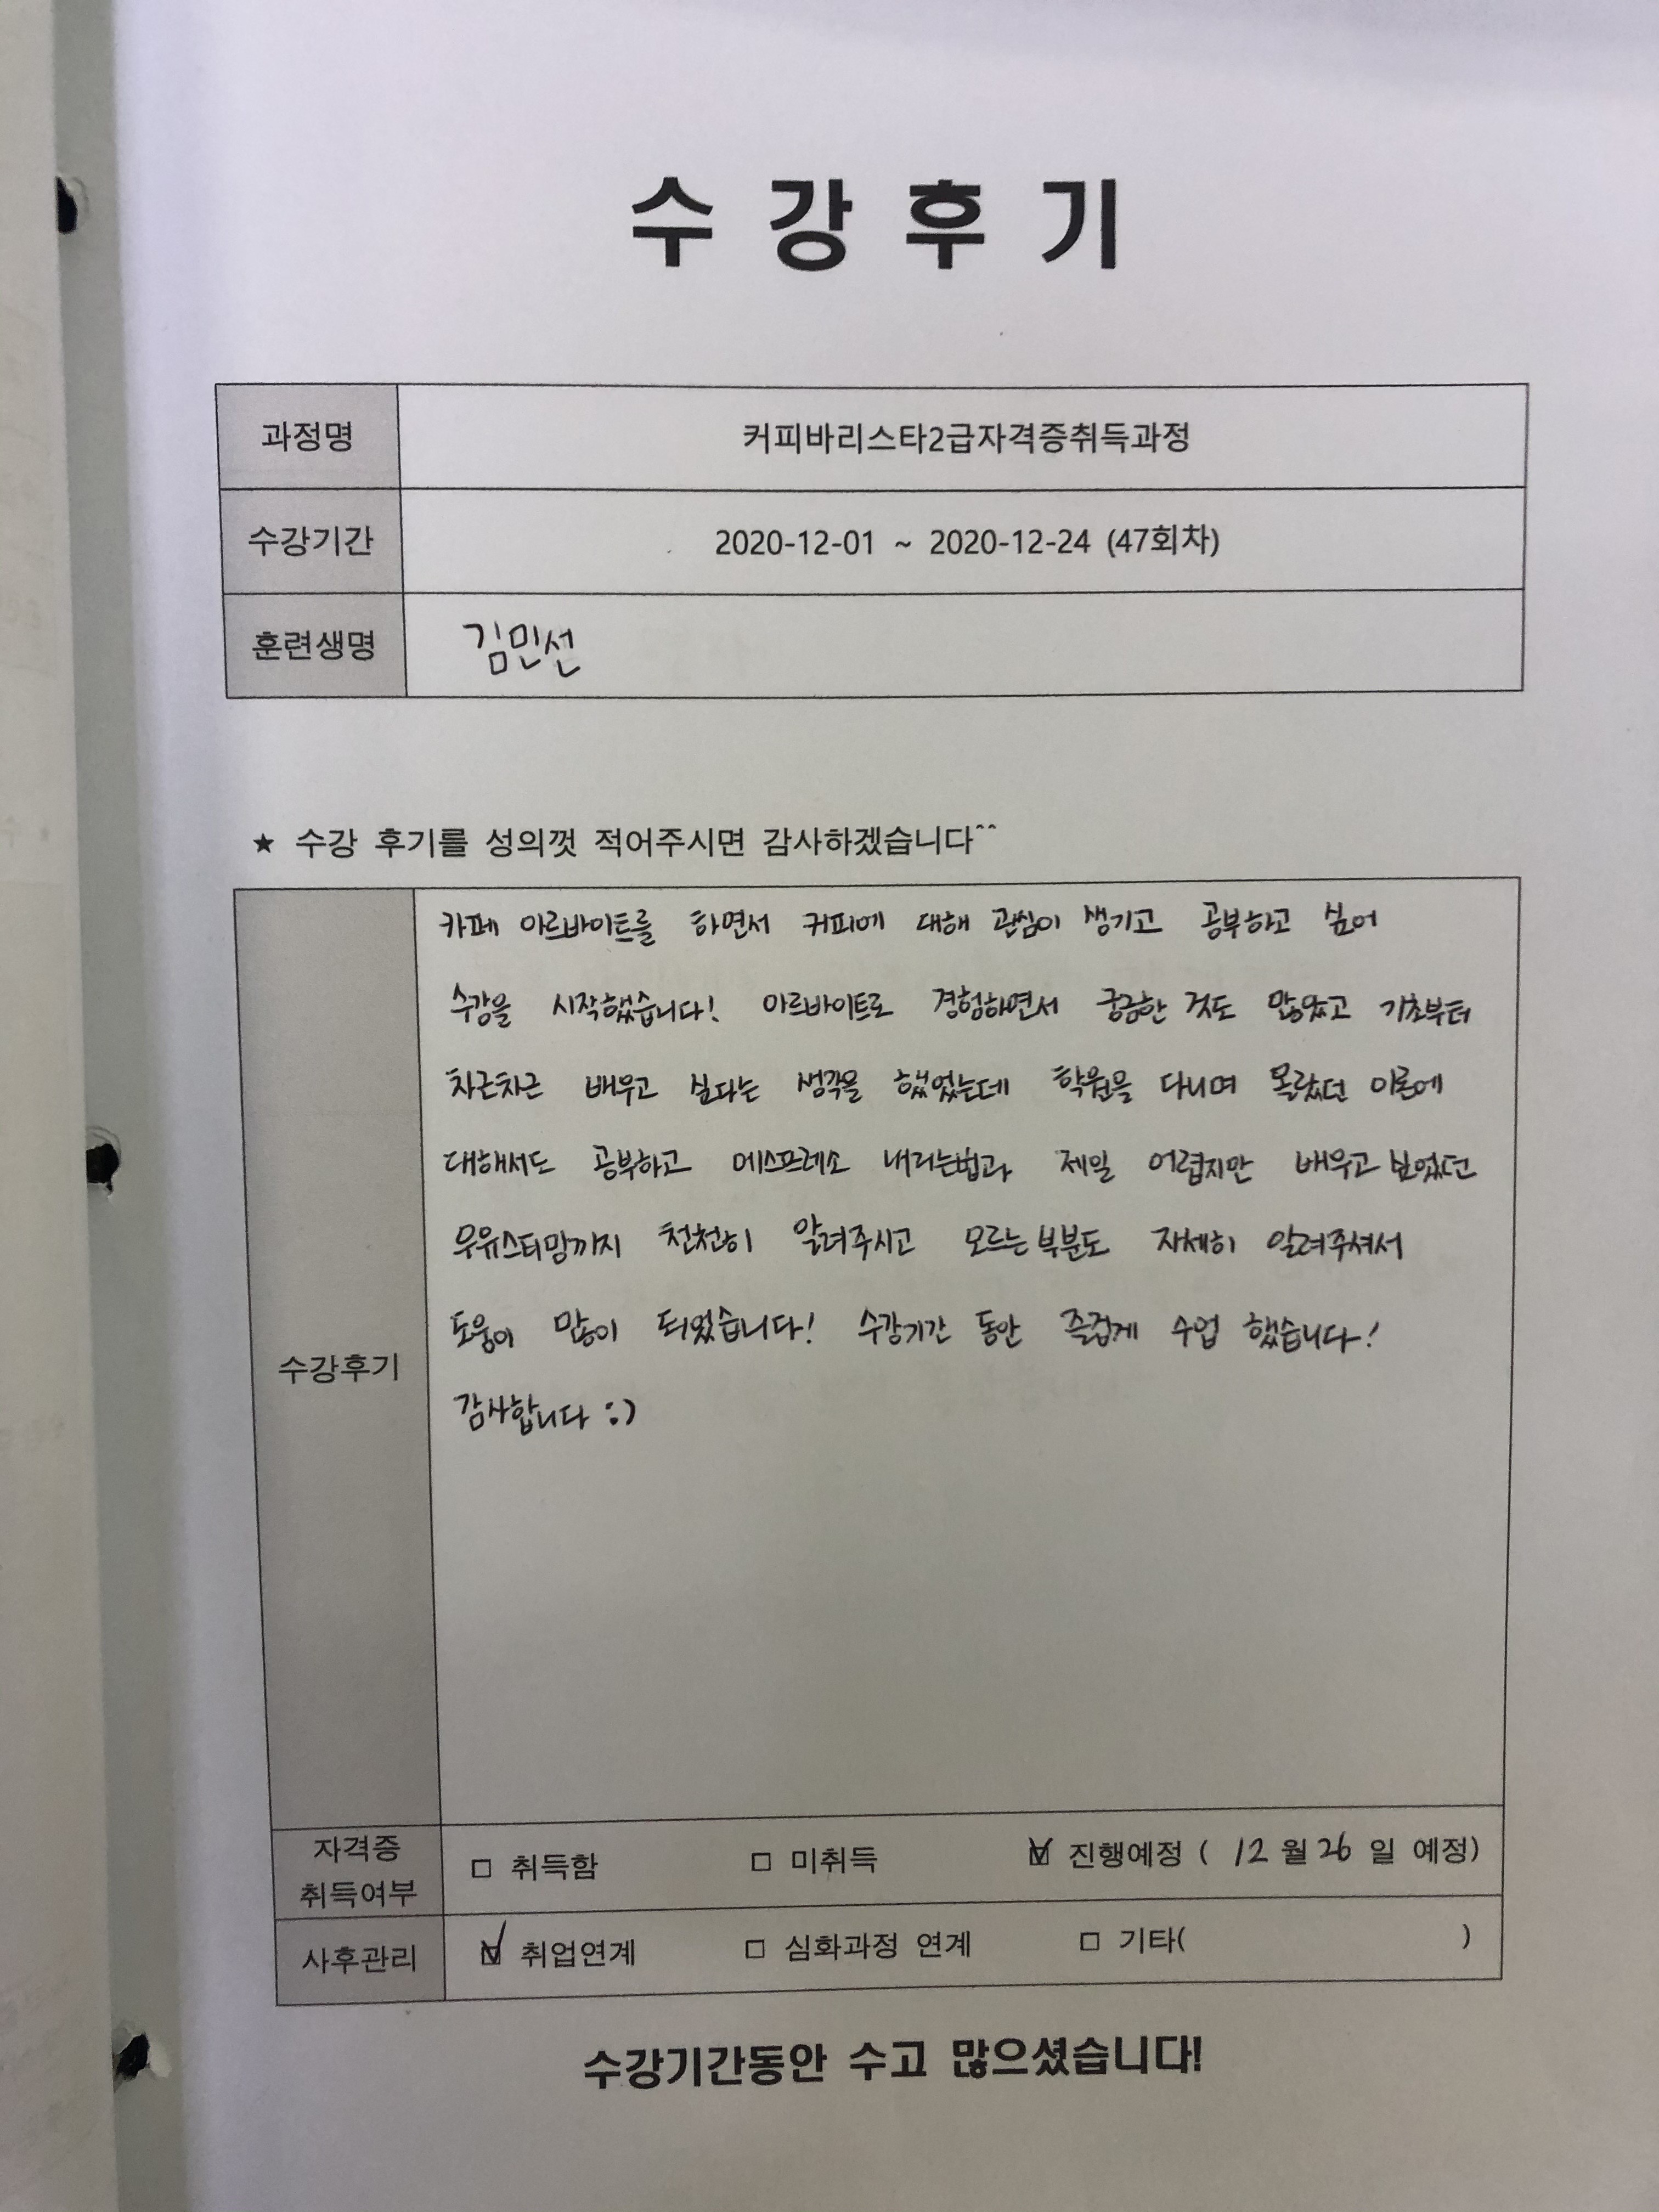 수 강 후 기
과정명 커피바리스타2급자격증취득과정
수강기간 2020-12-01 ~ 2020-12-24 (47회차)
훈련생명 김민선
★ 수강 후기를 성의껏 적어주시면 감사하겠습니다^^
카페 아르바이트를 하면서 커피에 대해 관심이 생기고 공부하고 싶어
수강을 시작했습니다! 아르바이트로 경험하면서 궁금한 것도 많았고 기초부터
차근차근 배우고 싶다는 생각을 했었는데 학원을 다니며 몰랐던 이론에
대해서도 공부하고 에스프레소 내리는법과 제일 어렵지만 배우고 싶었던
우유스티밍까지 천천히 알려주시고 모르는 부분도 자세히 알려주셔서
도움이 많이 되었습니다! 수강기간 동안 즐겁게 수업 했습니다!
감사합니다 :)
수강후기
자격증
취득여부
□ 취득함 □ 미취득 ☑ 진행예정 ( 12 월 26 일 예정)
사후관리 ☑ 취업연계 □ 심화과정 연계 □ 기타( )
수강기간동안 수고 많으셨습니다!